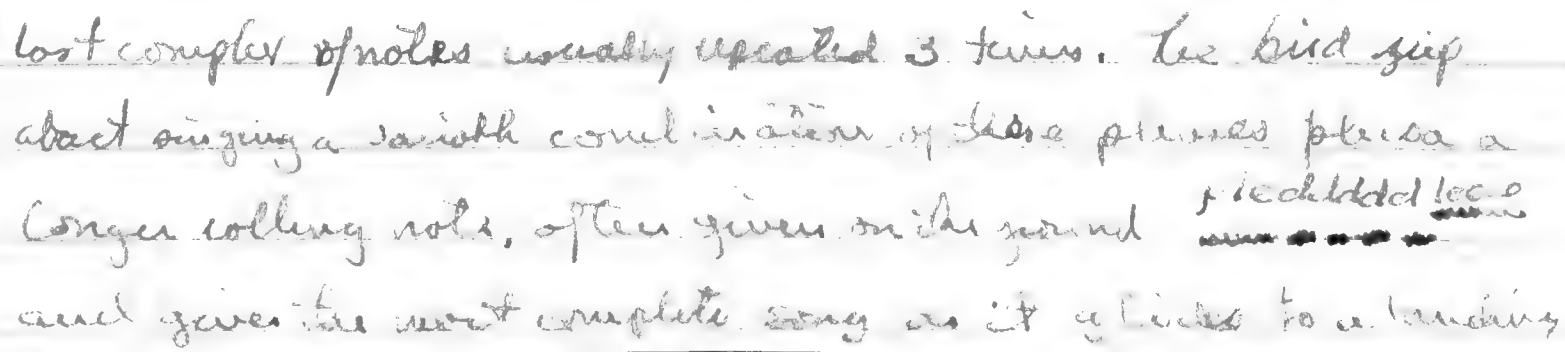 last complex of notes usually repeated 3 times. The bird zip
about singing a combination of these phrases plus a
longer rolling note, often given on the ground
and gives the most complete song as it glides to a landing